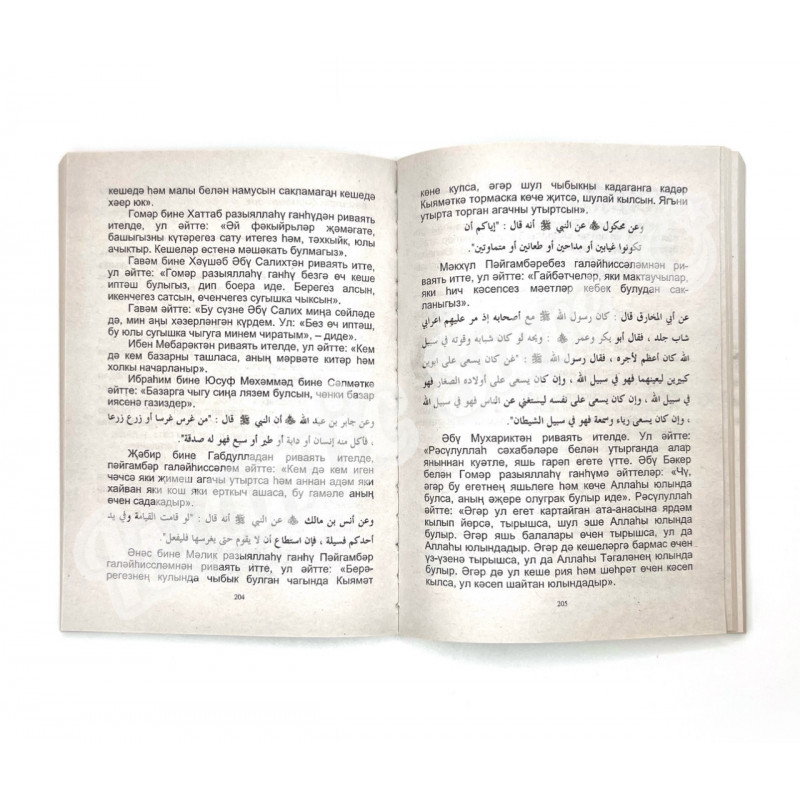 кешедә һәм малы белән намусын сакламаган кешедә
хәер юк».
Гомәр бине Хаттаб разыяллаһу ганһудән риваять
ителде, ул әйтте: «Әй фәкыйрьләр җәмәгате,
башыгызны күтәрегез сату итегез һәм, тәхкыйк, юлы
ачыктыр. Кешеләр өстенә мәшәкать булмагыз».
Гавәм бине Хәүшәб Әбү Салихтән риваять итте,
ул әйтте: «Гомәр разыяллаһу ганһу безгә өч кеше
иптәш булыгыз, дип боера иде. Берегез алсын,
икенчегез сатсын, өченчегез сугышка чыксын».
Гавәм әйтте: «Бу сүзне Әбү Салих миңа сөйләде
дә, мин аны хәзерләнгән күрдем. Ул: «Без өч иптәш,
бу юлы сугышка чыгуга минем чиратым», – диде».
Ибен Мөбарәктән риваять ителде, ул әйтте: «Кем
дә кем базарны ташласа, аның мәрвәте китәр һәм
холкы начарланыр».
Ибраһим бине Юсуф Мөхәммәд бине Сәлмәткә
әйтте: «Базарга чыгу сиңа лязем булсын, чөнки базар
иясенә газиздер».
وعن جابر بن عبد الله ﷺ أن النبي ﷺ قال : "من غرس غرسا أو زرع زرعا
، فأكل منه إنسان أو دابة أو طير أو سبع فهو له صدقة".
Җәбир бине Габдулладан риваять ителде,
пәйгамбәр галәйһиссәләм әйтте: «Кем дә кем иген
чәчсә яки җимеш агачы утыртса һәм аннан адәм яки
хайван яки кош яки ерткыч ашаса, бу гамәле аның
өчен садакадыр».
وعن أنس بن مالك ﷺ عن النبي ﷺ أنه قال : "لو قامت القيامة وفي يد
أحدكم فسيلة ، فإن استطاع أن لا يقوم حتى يغرسها فليفعل".
Әнәс бине Малик разыяллаһу ганһу Пәйгамбәр
галәйһиссәләмнән риваять итте, ул әйтте: «Берә-
регезнең кулында чыбык булган чагында Кыямәт
204
көне купса, әгәр шул чыбыкны кадаганга кадәр
Кыямәткә тормаска көче җитсә, шулай кылсын. Ягъни
утырта торган агачны утыртсын».
وعن محكول ﷺ عن النبي ﷺ أنه قال : "إياكم أن
تكونوا غيابين أو مداحين أو طعانين أو متماوتين".
Мәкхүл Пәйгамбәребез галәйһиссәләмнән ри-
ваять итте, ул әйтте: «Гайбәтчеләр, яки мактаучылар,
яки һич кәсепсез мәетләр кебек булудан сак-
ланыгыз».
عن أبي المخارق قال : كان رسول الله ﷺ مع أصحابه إذ مر عليهم اعرابي
شاب جلد ، فقال أبو بكر وعمر ﷺ : ويحه لو كان شبابه وقوته في سبيل
الله كان أعظم لأجره ، فقال رسول الله ﷺ : "عن كان يسعى على ابوين
كبيرين ليعينهما فهو في سبيل الله ، وإن كان يسعى على أولاده الصغار فهو
في سبيل الله ، وإن كان يسعى على نفسه ليستغني عن الناس فهو في سبيل الله
، وإن كان يسعى رياء وسمعة فهو في سبيل الشيطان".
Әбү Мухариктән риваять ителде. Ул әйтте:
«Рәсүлуллаһ сәхабәләре белән утырганда алар
яныннан куәтле, яшь гарәп егете үтте. Әбү Бәкер
белән Гомәр разыяллаһу ганһүмә әйттеләр: «Чү,
әгәр бу егетнең яшьлеге һәм көче Аллаһы юлында
булса, аның әҗере олуграк булыр иде». Рәсүлуллаһ
әйтте: «Әгәр ул егет картайган ата-анасына ярдәм
кылып йөрсә, тырышса, шул эше Аллаһы юлында
булыр. Әгәр яшь балалары өчен тырышса, ул да
Аллаһы юлындадыр. Әгәр дә кешеләргә бармас өчен
үз-үзенә тырышса, ул да Аллаһы Тәгаләнең юлында
булыр. Әгәр дә ул кеше рия һәм шөһрәт өчен кәсеп
кылса, ул кәсеп шайтан юлындадыр».
205